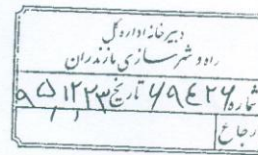 دبیرخانه اداره کل
راه و شهرسازی مازندران
شماره ۶۹۴۲۶ تاریخ ۹۵/۱۲/۲۳
ارجاع